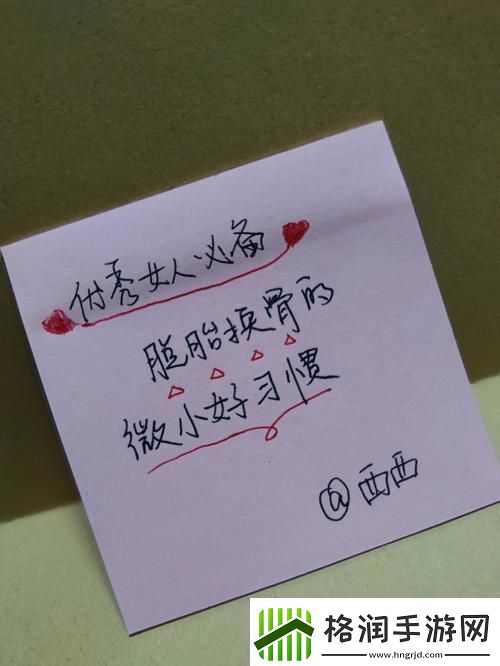 优秀女人必备
脱胎换骨的
微小好习惯
@西西
格润手游网
www.hngrjd.com